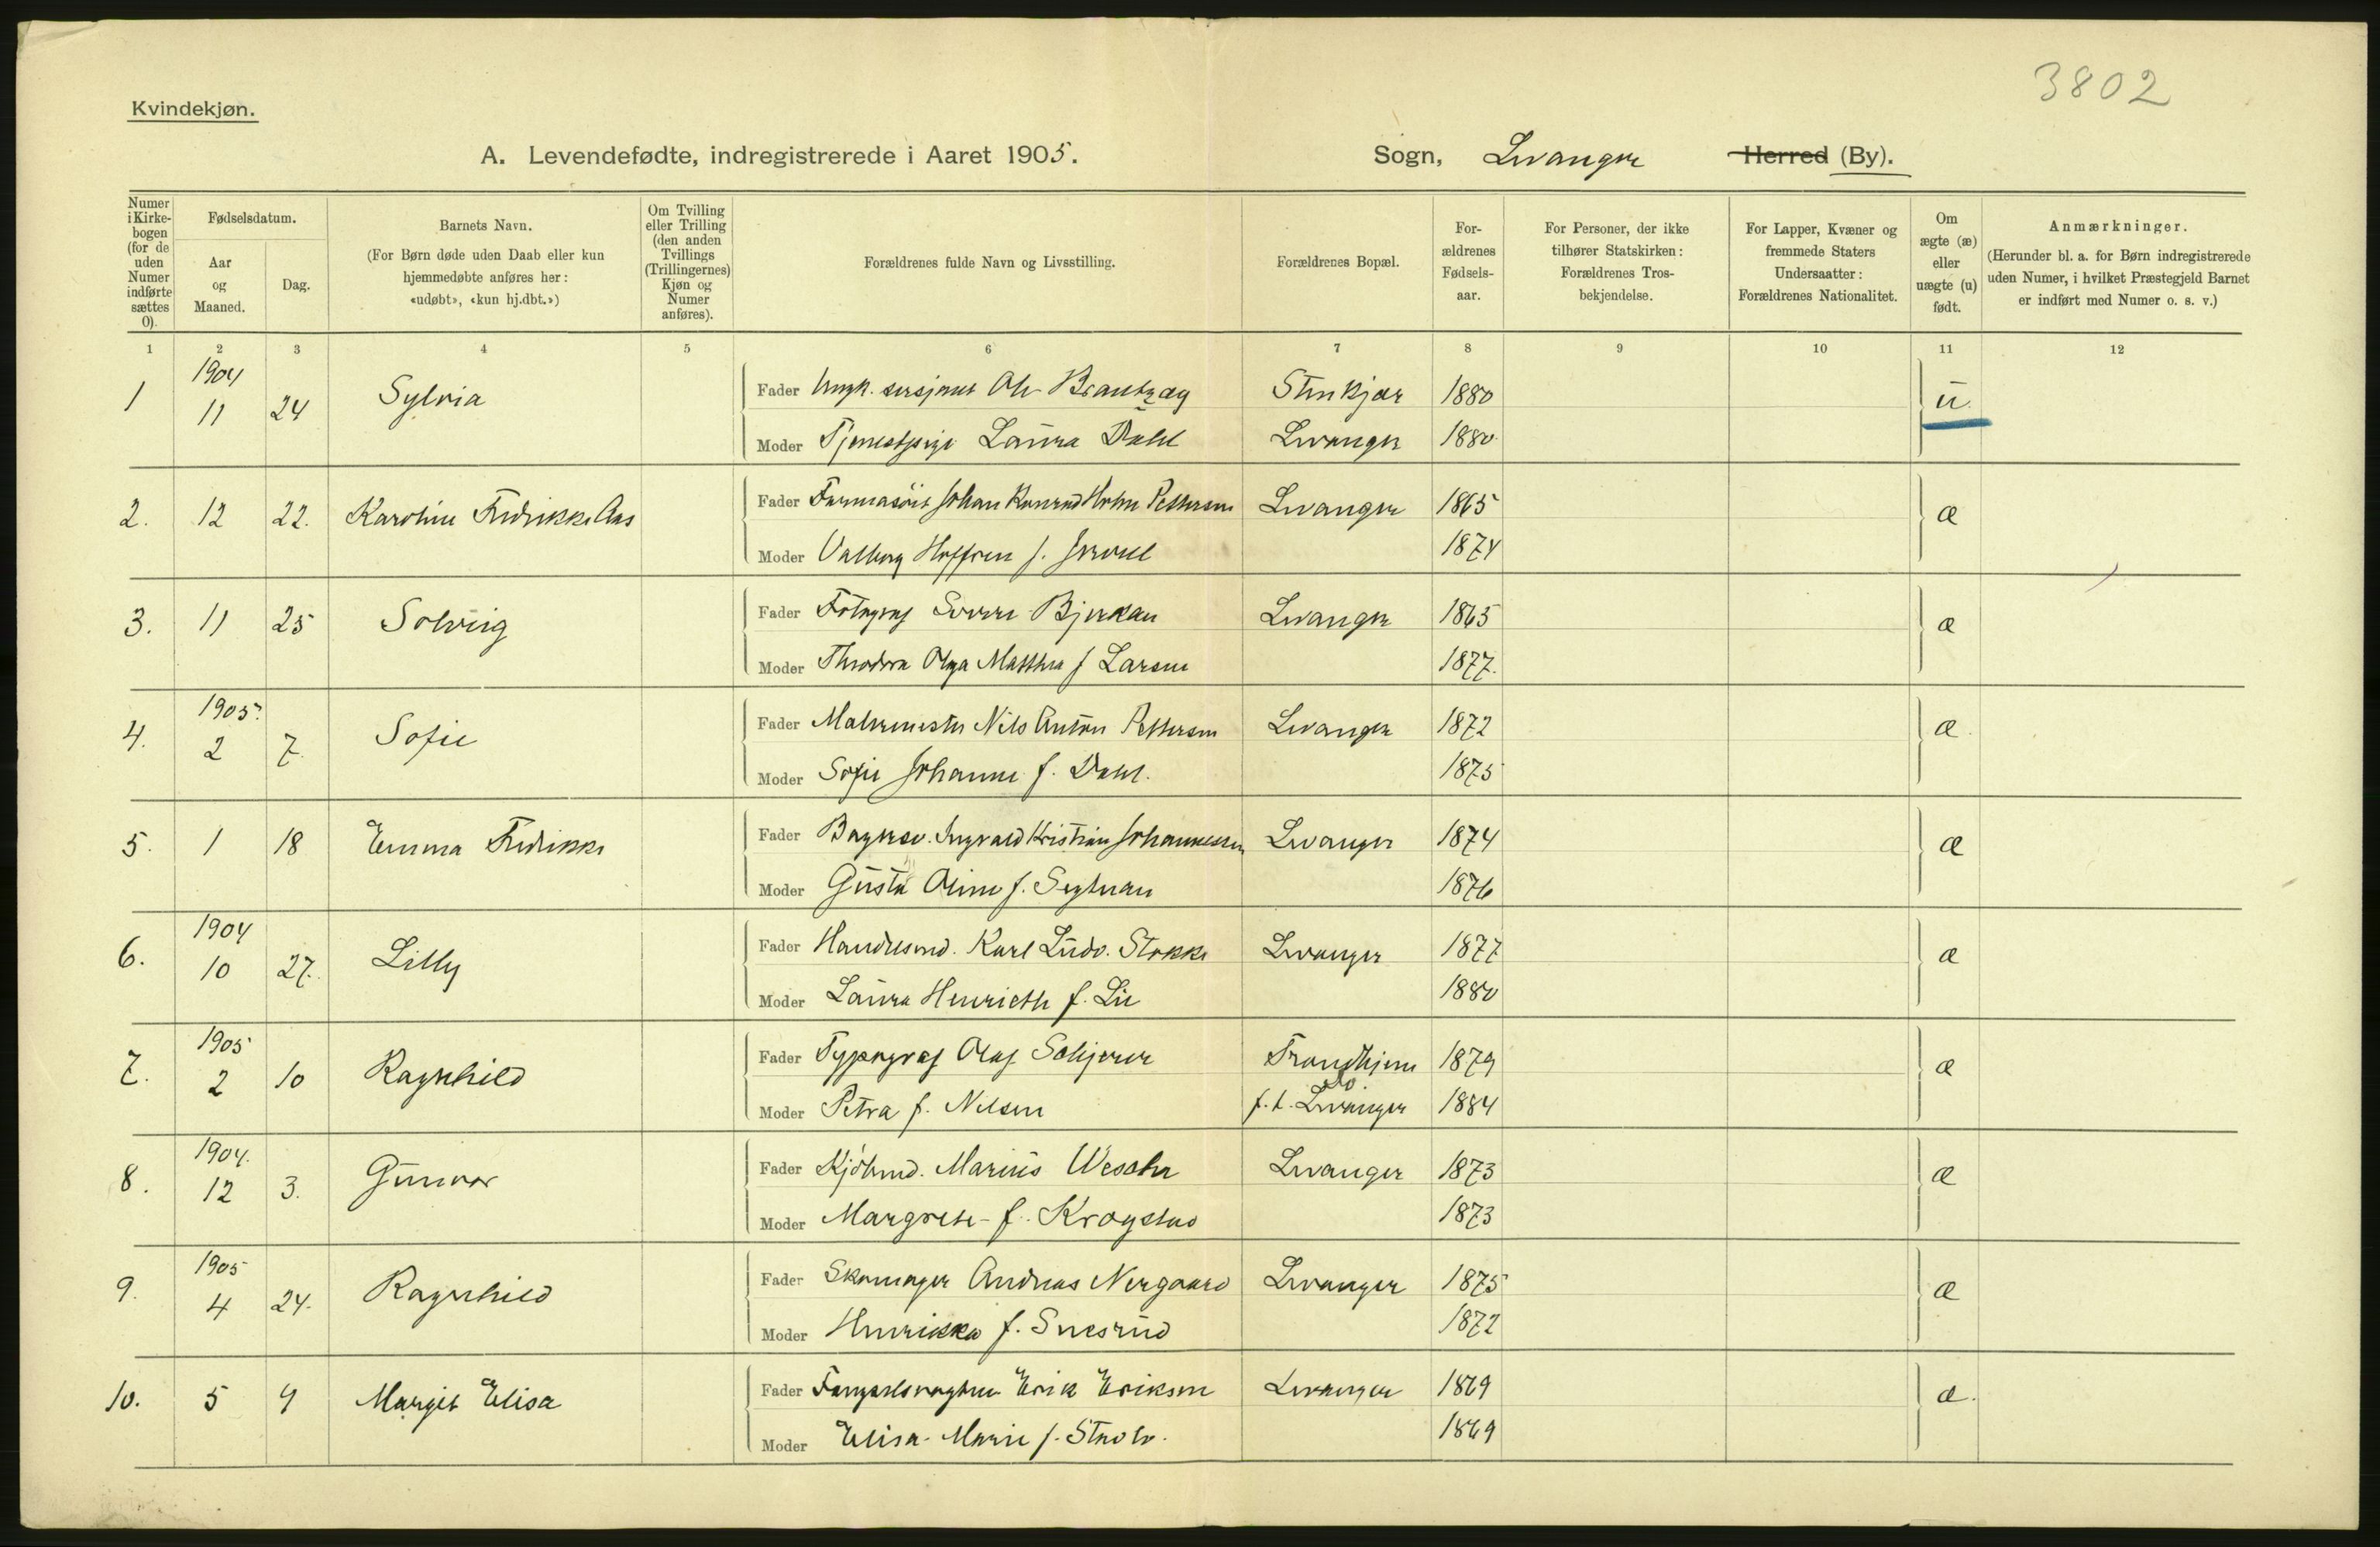 3802
Kvindekjøn.
A. Levendefødte, indregistrerede i Aaret 1905. Sogn, Levanger Herred (By).
Numer i Kirkebogen (for de uden Numer indførte sættes 0).
Fødselsdatum.
Aar og Maaned.
Dag.
Barnets Navn.
(For Børn døde uden Daab eller kun hjemmedøbte anføres her: «udøbt», «kun hj.dbt.»)
Om Tvilling eller Trilling (den anden Tvillings (Trillingernes) Kjøn og Numer anføres).
Forældrenes fulde Navn og Livsstilling.
Forældrenes Bopæl.
Forældrenes Fødselsaar.
For Personer, der ikke tilhører Statskirken: Forældrenes Trosbekjendelse.
For Lapper, Kvæner og fremmede Staters Undersaatter: Forældrenes Nationalitet.
Om ægte (æ) eller uægte (u) født.
Anmærkninger.
(Herunder bl. a. for Børn indregistrerede uden Numer, i hvilket Præstegjeld Barnet er indført med Numer o. s. v.)
1 2 3 4 5 6 7 8 9 10 11 12
1 1904 11 24 Sylvia Fader Ungk. sersjant Ole Brantzæg Stenkjær 1880 u.
Moder Tjenestpige Laura Dahl Levanger 1880
2. 12 22. Karoline Fredrikke Aas Fader Farmasöit Johan Konrad Holm Pettersen Levanger 1865 æ
Moder Valborg f. 1874
3. 11 25 Solveig Fader Fotograf Sverre Bjerkan Levanger 1865 æ
Moder Theodora Olga Matthea f Larsen 1877.
4. 1905. 2 7. Sofie Fader Malermester Nils Anton Pettersen Levanger 1872 æ.
Moder Sofie Johanne f. Dahl. 1875
5. 1 18 Emma Fredrikke Fader Bagersv. Ingvald Kristian Johannessen Levanger 1874 æ
Moder Gusta Oline f. Segtnan 1876
6. 1904 10 27. Lilly Fader Handlesmd. Karl Ludv. Stokke Levanger 1877 æ
Moder Laura Henriette f. Lie 1880
7. 1905 2 10 Ragnhild Fader Typograf Olaf Schjerve Trondhjem 1879 æ
Moder Petra f. Nilsen f.t. Levanger 1884
8. 1904. 12 3. Gunvor Fader Kjöbmd. Marius Wessche Levanger 1873 æ
Moder Margrete f. Krogstad 1873
9. 1905 4 24. Ragnhild Fader Skomager Andreas Nergaard Levanger 1875 æ
Moder Henrikka f. Snesrud 1872
10. 5 4 Margit Elisa Fader Fængselsvogteren Erik Eriksen Levanger 1869 æ.
Moder Elisa Marie f. 1869